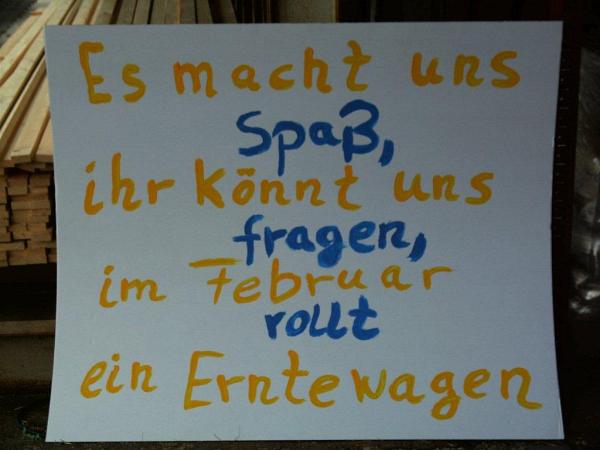 Es macht uns
Spaß,
ihr könnt uns
fragen,
im Februar
rollt
ein Erntewagen